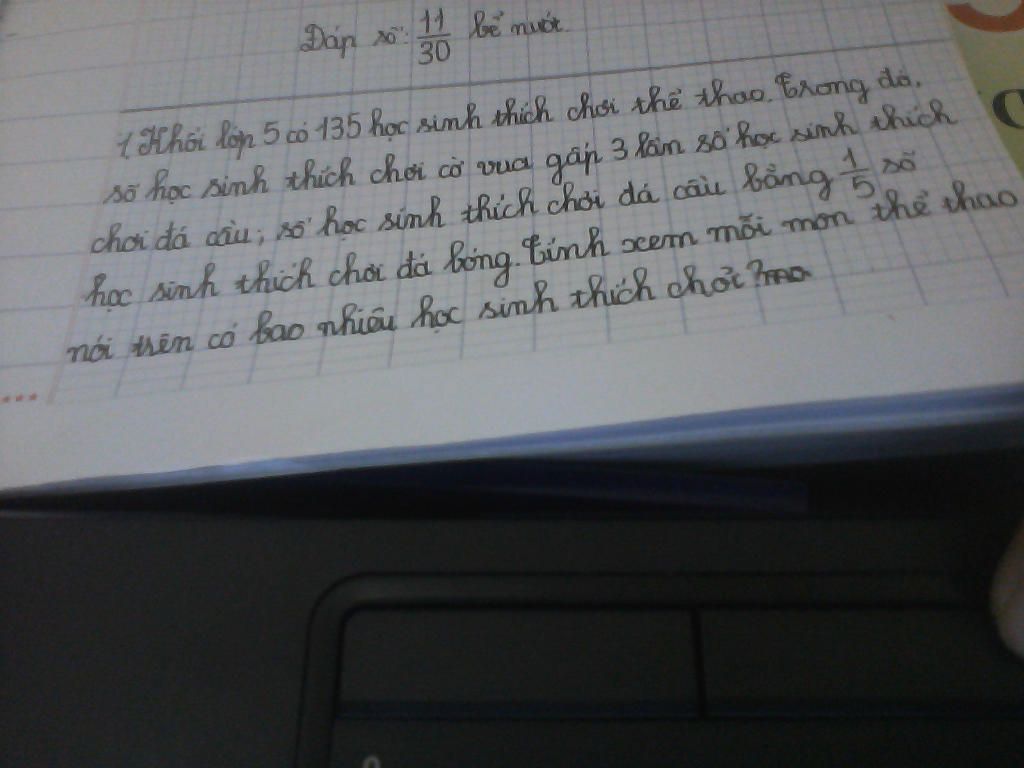 Đáp số: 11/30 bể nước.
1. Khối lớp 5 có 135 học sinh thích chơi thể thao. Trong đó,
số học sinh thích chơi cờ vua gấp 3 lần số học sinh thích
chơi đá cầu; số học sinh thích chơi đá cầu bằng 1/5 số
học sinh thích chơi đá bóng. Tính xem mỗi môn thể thao
nói trên có bao nhiêu học sinh thích chơi?